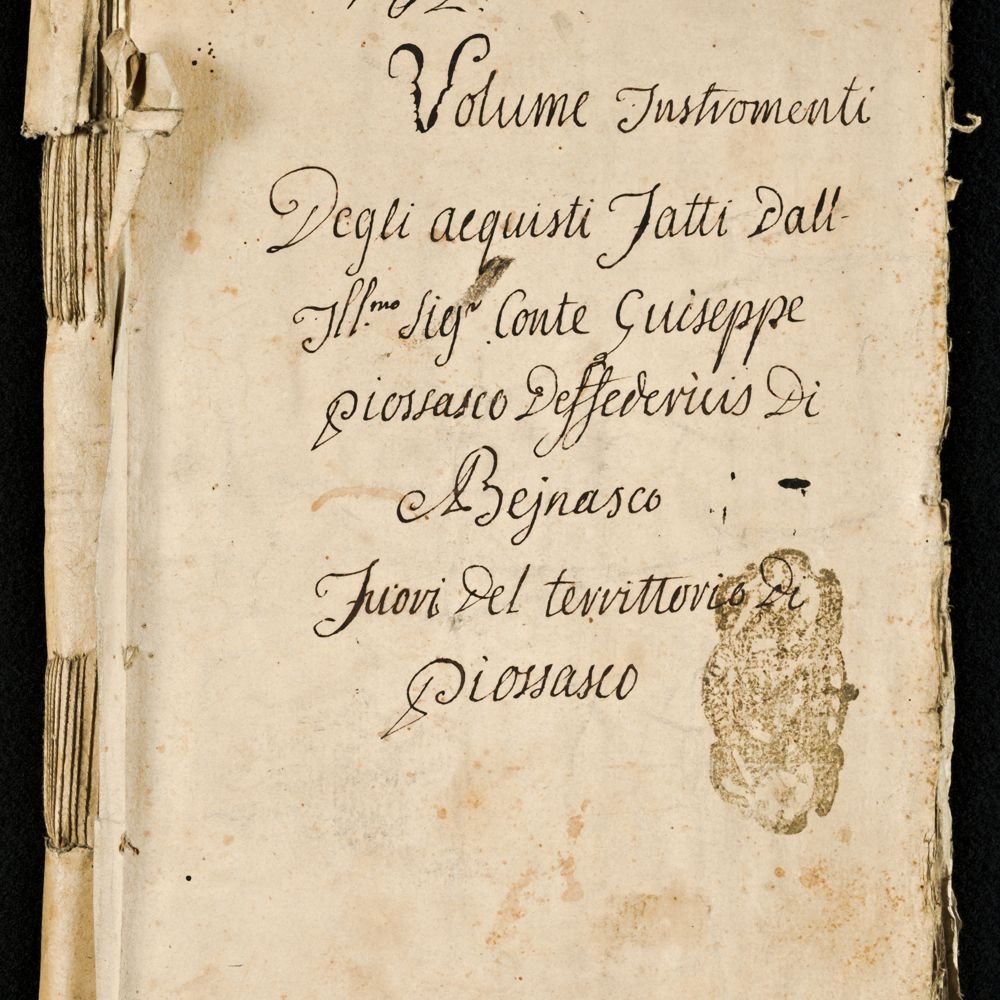 Volume Instromenti
Degli acquisti Fatti Dall-
Ill.mo Sigr Conte Guiseppe
piossasco Deffedericis Di
Bejnasco
Fuori Del terrvittorio Di
piossasco